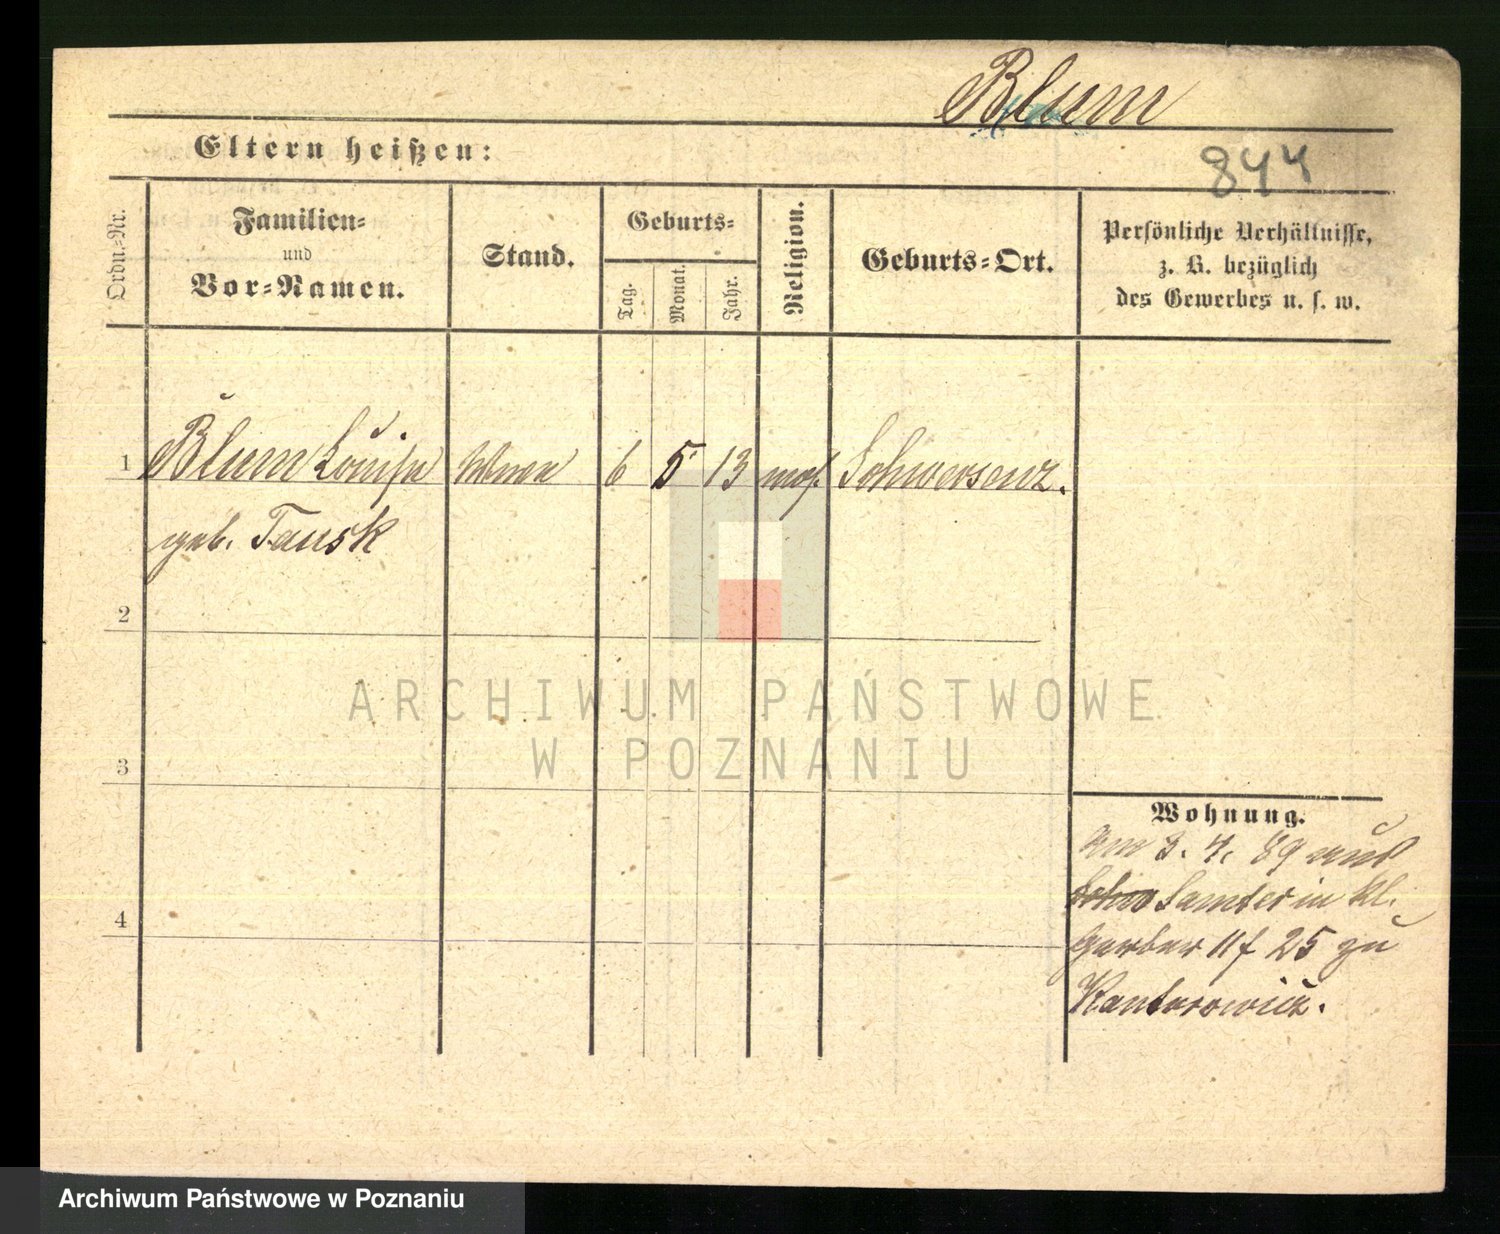 Blum
Eltern heißen:
844
Ordn.-Nr.
Familien-
und
Vor-Namen.
Stand.
Geburts-
Tag.
Monat.
Jahr.
Religion.
Geburts-Ort.
Persönliche Verhältnisse,
z. B. bezüglich
des Gewerbes u. s. w.
1 Blum Louise Wwe 6 5 13 mos. Schwersenz.
geb. Tausk
2
3
4
Wohnung.
Am 3. 4. 89 aus
Samter in Kl.
Gerber 11 f 25 zu
Kantorowicz.
ARCHIWUM PAŃSTWOWE
W POZNANIU
Archiwum Państwowe w Poznaniu